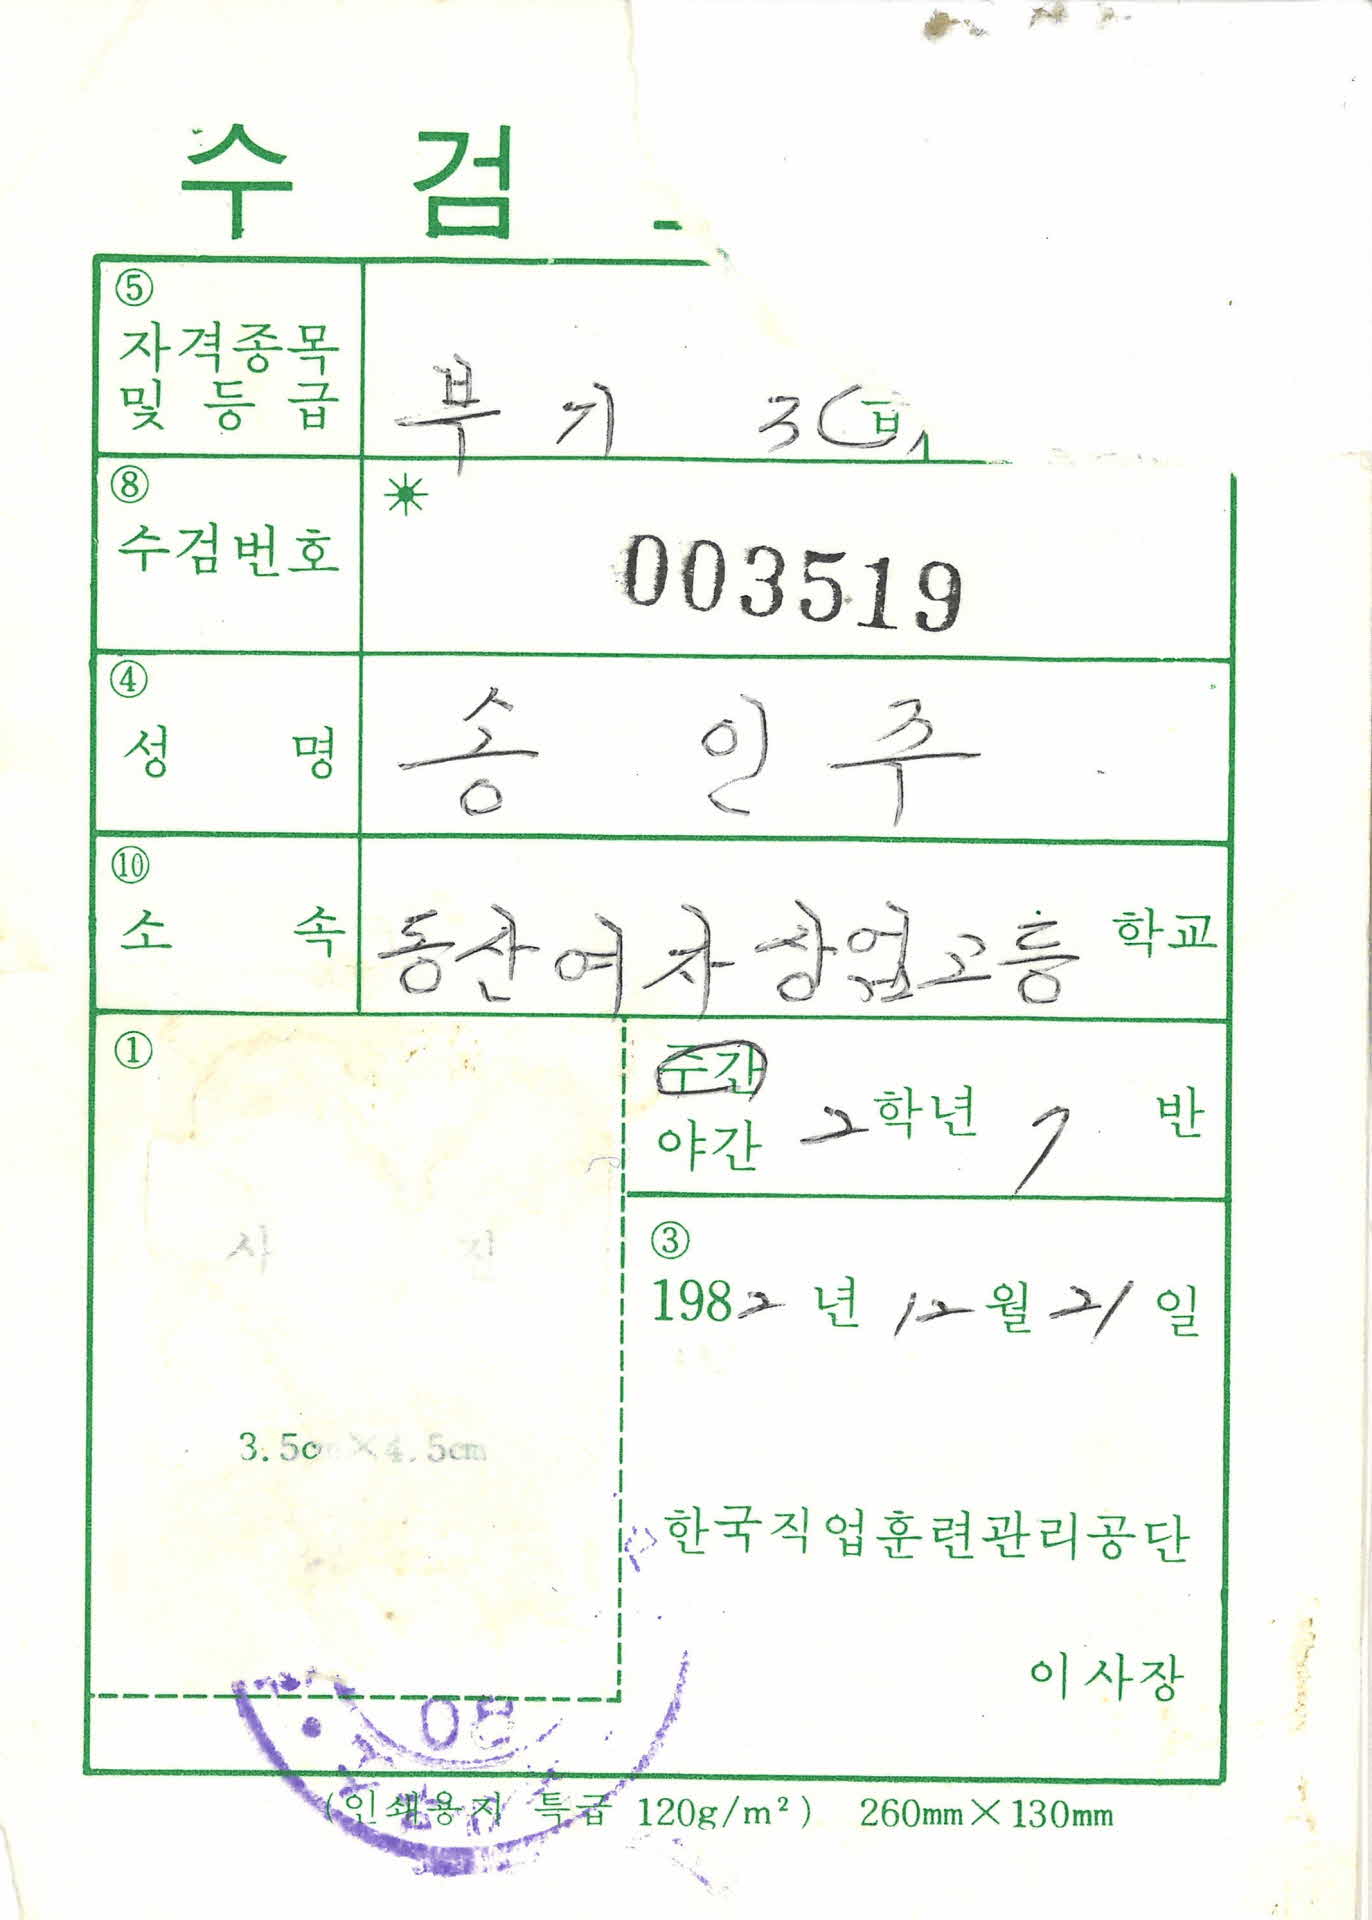 수 검
⑤
자격종목
및 등 급
부기 3급
⑧
수검번호
✳
003519
④
성 명
송 인 주
⑩
소 속
동산여자상업고등 학교
①
주간
야간
2학년 7 반
사 진
3.5cm×4.5cm
③
1982 년 12 월 21 일
한국직업훈련관리공단
이사장
(인쇄용지 특급 120g/m²) 260mm×130mm